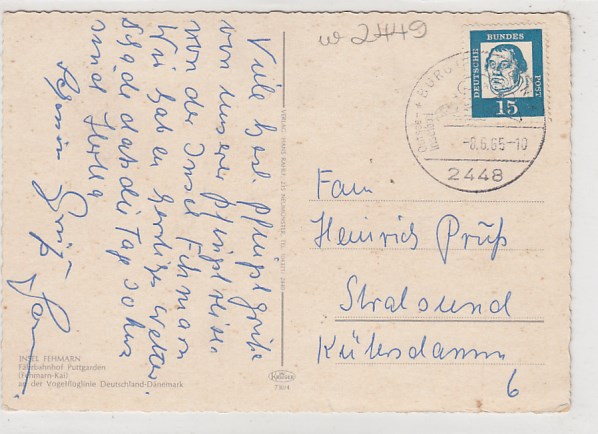 w 2449
Viele herzl. Pfingstgrüße
von unserer Pfingstreise
von der Insel Fehmarn
Wir haben herrliches Wetter.
Schade daß die Tage so kurz
sind Herta
Grüß
INSEL FEHMARN
Fährbahnhof Puttgarden
(Fehmarn-Kai)
an der Vogelfluglinie Deutschland-Dänemark
VERLAG HANS
NEUMÜNSTER, TEL.
7394
DEUTSCHE
BUNDES
POST
15
BURG
-8.6.65-10
2448
Fam
Heinrich Prüß
Stralsund
Kütersdamm
6